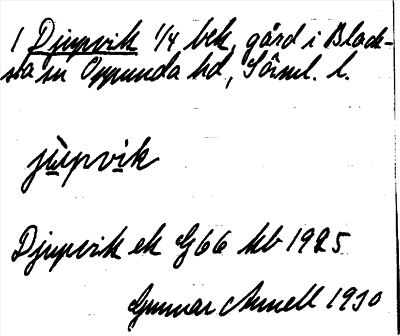 1 Djupvik 1/4 bek, gård i Black-
sta sn Oppunda hd, Sörml. l.
jùpvik
Djupvik ek G66 kb 1925
Gunnar Annell 1930